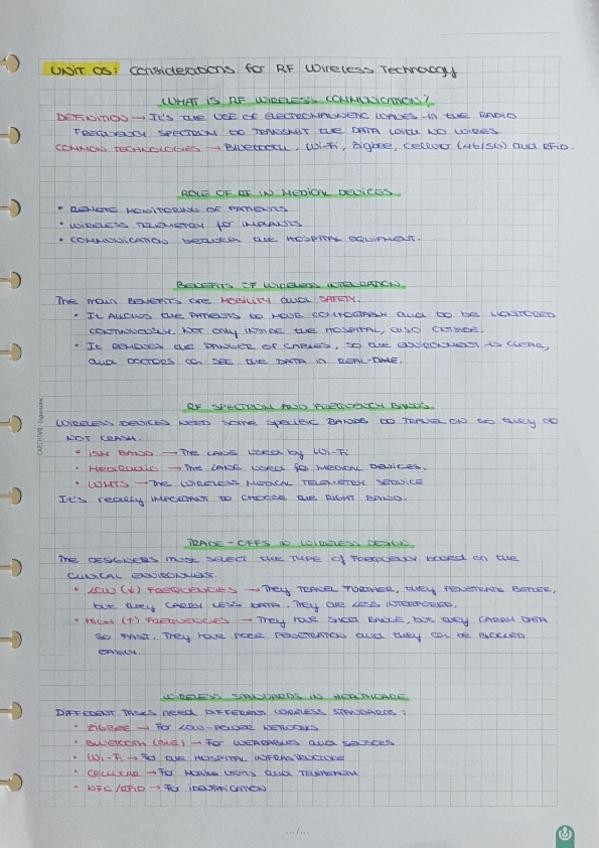 UNIT 05: Considerations for RF Wireless Technology
WHAT IS RF WIRELESS COMMUNICATION?
DEFINITION → It's the use of electromagnetic waves in the radio
frequency spectrum to transmit the data with no wires.
COMMON TECHNOLOGIES → Bluetooth, Wi-Fi, Zigbee, Cellular (4G/5G) and RFID.
ROLE OF RF IN MEDICAL DEVICES
• REMOTE MONITORING OF PATIENTS
• WIRELESS TELEMETRY for IMPLANTS
• COMMUNICATION between the HOSPITAL EQUIPMENT.
BENEFITS OF WIRELESS INTEGRATION
The main BENEFITS are MOBILITY and SAFETY.
• It ALLOWS the PATIENTS to MOVE COMFORTABLY and to be MONITORED
CONTINUOUSLY. NOT only inside the HOSPITAL, also OUTSIDE.
• It REMOVES the DANGER of CABLES, so the ENVIRONMENT is CLEAR,
and DOCTORS can SEE the DATA in REAL-TIME.
RF SPECTRUM AND FREQUENCY BANDS
WIRELESS DEVICES NEED some SPECIFIC BANDS to TRAVEL ON so they do
NOT CRASH.
• ISM BAND → The LANE used by Wi-Fi
• MedRadio → The LANE used for MEDICAL DEVICES.
• WMTS → The WIRELESS MEDICAL TELEMETRY SERVICE
It's really IMPORTANT to CHOOSE the RIGHT BAND.
TRADE-OFFS IN WIRELESS DESIGN
The DESIGNERS must SELECT the TYPE of Frequency based on the
CLINICAL ENVIRONMENT.
• LOW (↓) FREQUENCIES → They TRAVEL FURTHER, they PENETRATE BETTER,
but they CARRY LESS DATA. They are LESS
• HIGH (↑) FREQUENCIES → They have SHORT RANGE, but they CARRY DATA
so FAST. They have POOR PENETRATION and they can be BLOCKED
EASILY.
WIRELESS STANDARDS IN HEALTHCARE
DIFFERENT TASKS need DIFFERENT WIRELESS STANDARDS:
• ZIGBEE → For LOW-POWER NETWORKS
• BLUETOOTH (BLE) → For WEARABLES and SENSORS
• Wi-Fi → For the HOSPITAL INFRASTRUCTURE
• CELLULAR → For MOBILE UNITS and
• NFC/RFID → For IDENTIFICATION
.../...